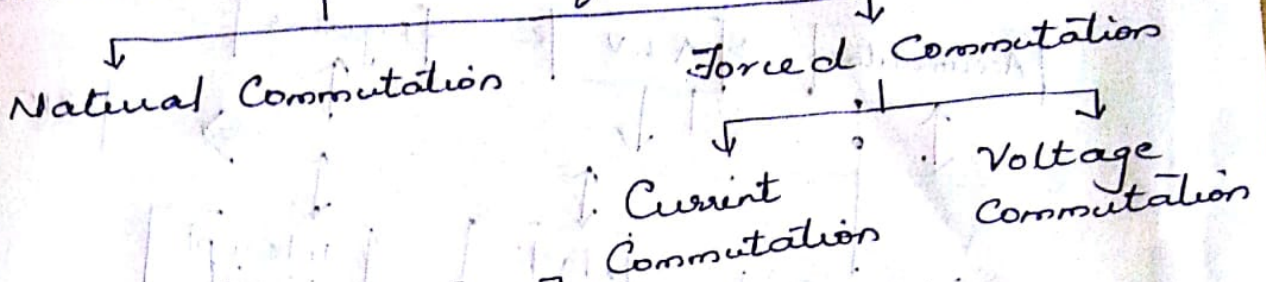 Natural Commutation
Forced Commutation
Current
Commutation
Voltage
Commutation